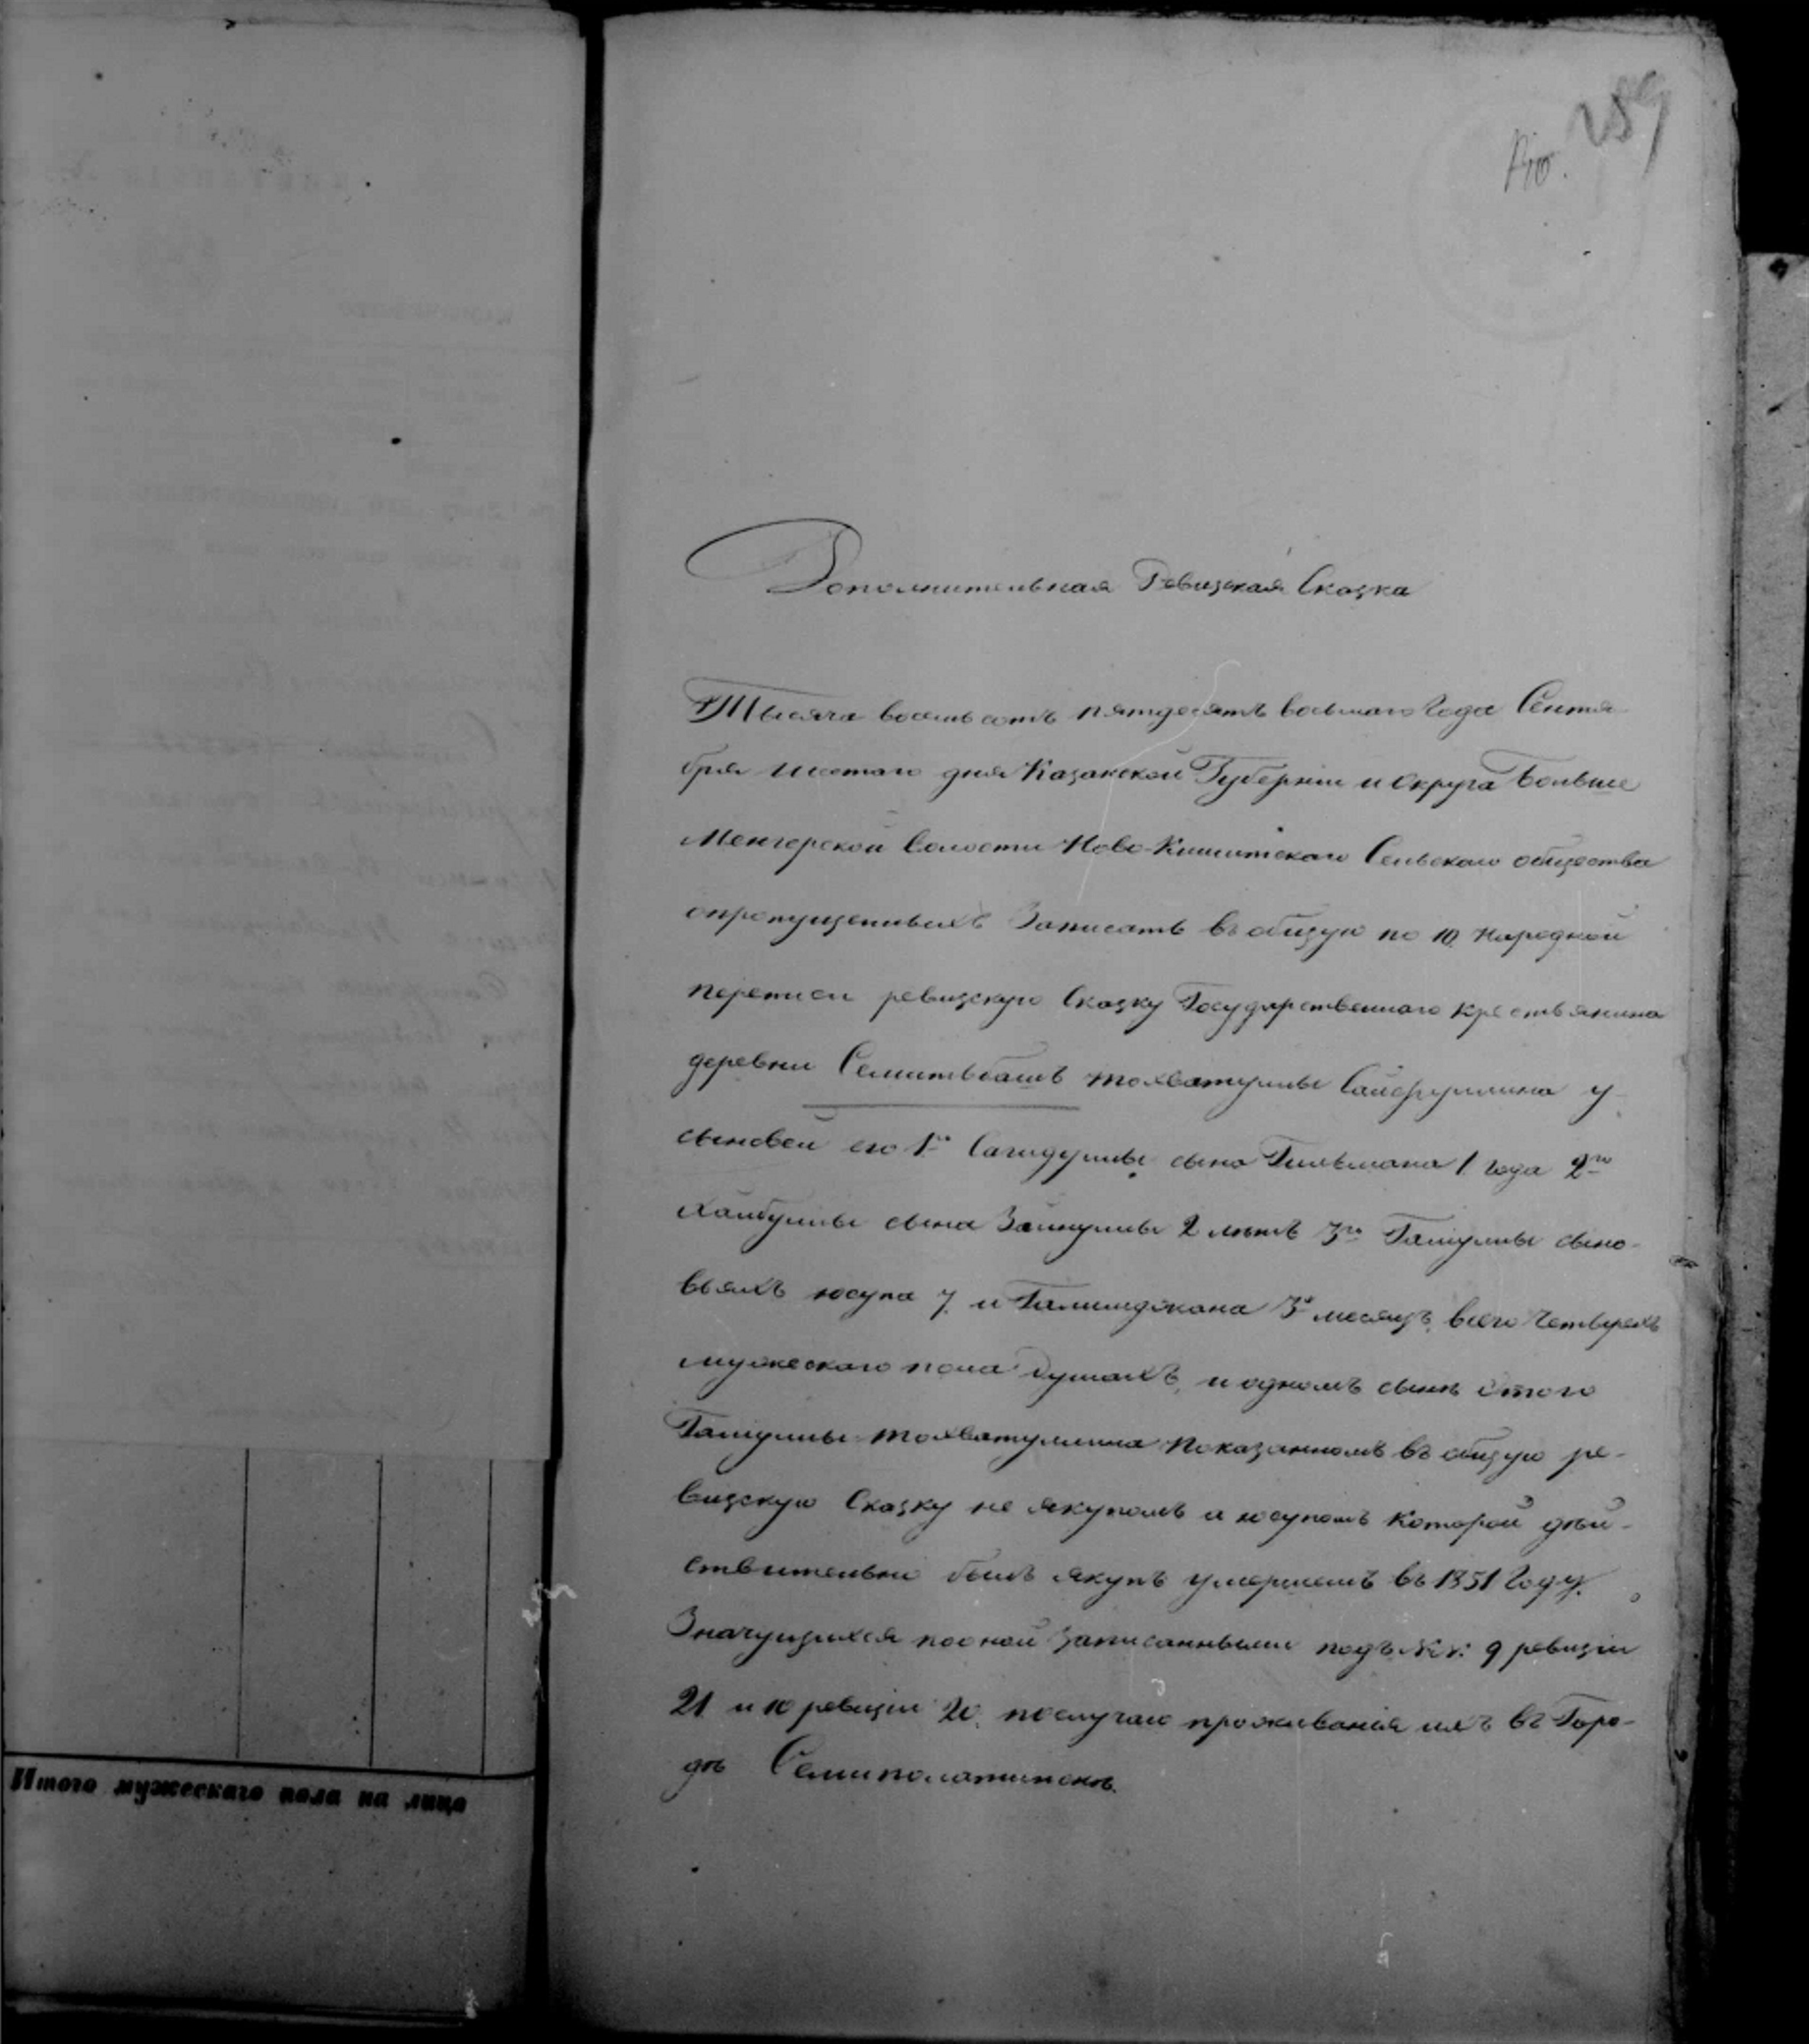 289
Дополнительная Ревизская Сказка
Тысяча восемьсотъ пятдесятъ восьмаго Года Сентя-
бря шестаго дня Казанской Губерніи и округа Больше
Менгерской волости Ново-Кишитскаго Сельскаго общества
опропущенныхъ Записать въ общую по 10 Народной
переписи ревизскую Сказку Государственнаго крестьянина
деревни Семитьбашъ Тохватуллы Сайфуллина у
сыновей его 1го Сагидуллы сына Гильмана 1 года 2го
Хайбуллы сына Зайнуллы 2 летъ 3го Галиуллы сыно-
вьяхъ юсупа 7 и Галимджана 3х месяцъ, всего четырехъ
мужескаго пола душахъ, и одномъ сыне этого
Галиуллы Тохватуллина показанномъ въ общую ре-
визскую Сказку не якупомъ а юсупомъ которой дей-
ствительно былъ якупъ умершемъ въ 1851 Году.
Значущихся по оной записанными подъ №№: 9 ревизіи
21 и 10 ревизіи 20. послучаю проживанія ихъ въ Горо-
де Семиполатинске.
Итого мужескаго пола на лицо